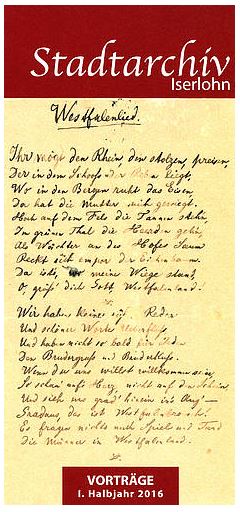 Stadtarchiv
Iserlohn
Westfalenlied.
Ihr mögt den Rhein, den stolzen, preisen,
Der in dem Schooß der Reben liegt,
Wo in den Bergen ruht das Eisen
Da hat die Mutter mich gewiegt.
Hoch auf dem Fels die Tannen stehn,
Im grünen Thal die Heerden gehn,
Als Wächter an des Hofes Saum
Reckt sich empor der Eichenbaum.
Da ist's, wo meine Wiege stand,
O, grüß' dich Gott Westfalenland!
Wir haben keine süß. Reden
Und schöner Worte
Und haben nicht so bald für Jeden
Den Brudergruß und Bruderkuß.
Wenn du uns willst willkommen sein,
So schau' auf's Herz, nicht auf den Schein,
Und sieh uns grad' hinein in's Aug'—
Gradaus, das ist
Es fragen nichts nach Spiel und Tand
Die Männer in Westfalenland.
VORTRÄGE
I. Halbjahr 2016